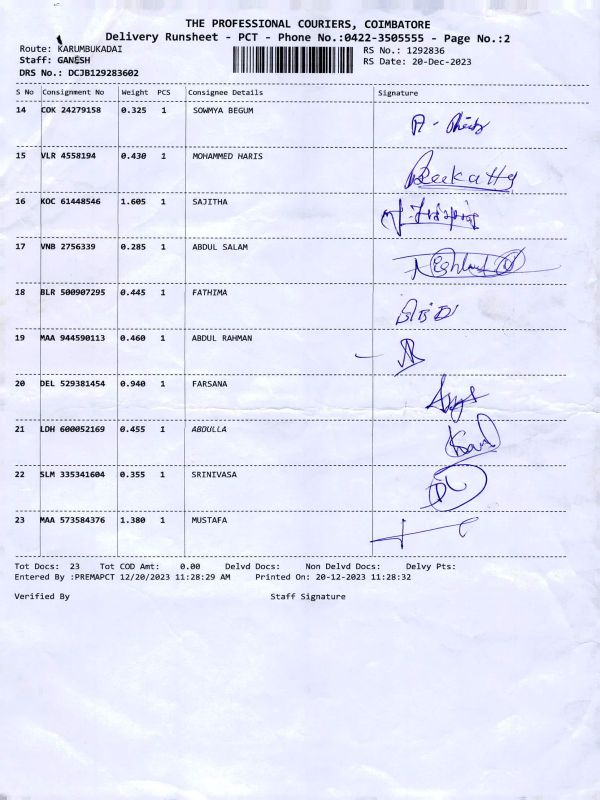 THE PROFESSIONAL COURIERS, COIMBATORE
Delivery Runsheet - PCT - Phone No.:0422-3505555 - Page No.:2
Route: KARUMBUKADAI
RS No.: 1292836
Staff: GANESH
RS Date: 20-Dec-2023
DRS No.: DCJB129283602
S No Consignment No Weight PCS Consignee Details Signature
14 COK 24279158 0.325 1 SOWMYA BEGUM
15 VLR 4558194 0.430 1 MOHAMMED HARIS
16 KOC 61448546 1.605 1 SAJITHA
17 VNB 2756339 0.285 1 ABDUL SALAM
18 BLR 500907295 0.445 1 FATHIMA
19 MAA 944590113 0.460 1 ABDUL RAHMAN
20 DEL 529381454 0.940 1 FARSANA
21 LDH 600052169 0.455 1 ABDULLA
22 SLM 335341604 0.355 1 SRINIVASA
23 MAA 573584376 1.380 1 MUSTAFA
Tot Docs: 23 Tot COD Amt: 0.00 Delvd Docs: Non Delvd Docs: Delvy Pts:
Entered By :PREMAPCT 12/20/2023 11:28:29 AM Printed On: 20-12-2023 11:28:32
Verified By Staff Signature